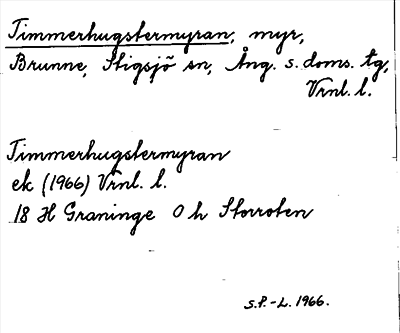 Timmerhugstermyran, myr,
Brunne, Stigsjö sn, Ång. s. doms. tg,
Vrnl. l.
Timmerhugstermyran
ek (1966) Vrnl. l.
18 H Graninge O h Storroten
S.P.-L. 1966.